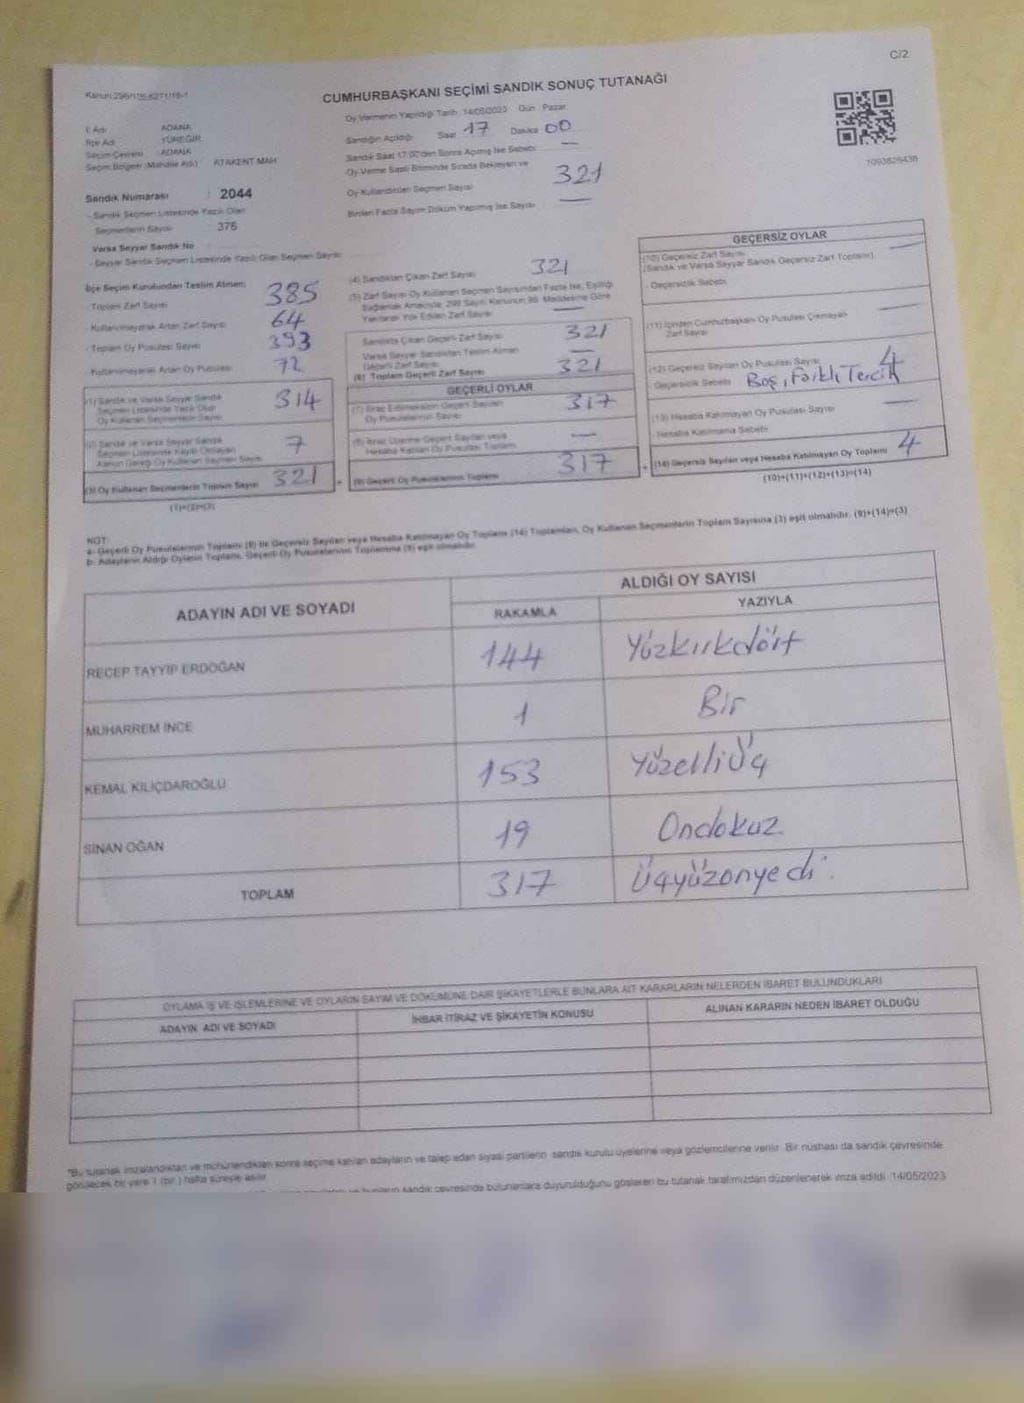 C/2
CUMHURBAŞKANI SEÇİMİ SANDIK SONUÇ TUTANAĞI
Oy Vermenin Yapıldığı Tarih : 14/05/2023 Gün : Pazar
İl Adı ADANA
İlçe Adı YÜREĞİR
Seçim Çevresi : ADANA
Seçim Bölgesi (Mahalle Adı) ATAKENT MAH
Sandığın Açıldığı Saat 17 Dakika 00
Sandık Saat 17:00'den Sonra Açılmış İse Sebebi —
Oy Verme Saati Bitiminde Sırada Bekleyen ve
Oy Kullandırılan Seçmen Sayısı 321
Birden Fazla Sayım Döküm Yapılmış İse Sayısı —
1093826438
Sandık Numarası : 2044
- Sandık Seçmen Listesinde Yazılı Olan
Seçmenlerin Sayısı 376
Varsa Seyyar Sandık No
- Seyyar Sandık Seçmen Listesinde Yazılı Olan Seçmen Sayısı
İlçe Seçim Kurulundan Teslim Alınan:
- Toplam Zarf Sayısı 385
- Kullanılmayarak Artan Zarf Sayısı 64
- Toplam Oy Pusulası Sayısı 393
- Kullanılmayarak Artan Oy Pusulası 72
(1) Sandık ve Varsa Seyyar Sandık
Seçmen Listesinde Yazılı Olup
Oy Kullanan Seçmenlerin Sayısı 314
(2) Sandık ve Varsa Seyyar Sandık
Seçmen Listesinde Kaydı Olmayan
Kanun Gereği Oy Kullanan Seçmen Sayısı 7
(3) Oy Kullanan Seçmenlerin Toplam Sayısı 321
(1)+(2)=(3)
(4) Sandıktan Çıkan Zarf Sayısı 321
(5) Zarf Sayısı Oy Kullanan Seçmen Sayısından Fazla İse, Eşitliği
Sağlamak Amacıyla, 298 Sayılı Kanunun 98. Maddesine Göre
Yakılarak Yok Edilen Zarf Sayısı —
Sandıkta Çıkan Geçerli Zarf Sayısı 321
Varsa Seyyar Sandıktan Teslim Alınan
Geçerli Zarf Sayısı —
(6) Toplam Geçerli Zarf Sayısı 321
GEÇERLİ OYLAR
(7) İtiraz Edilmeksizin Geçerli Sayılan
Oy Pusulalarının Sayısı 317
(8) İtiraz Üzerine Geçerli Sayılan veya
Hesaba Katılan Oy Pusulası Toplamı —
(9) Geçerli Oy Pusulalarının Toplamı 317
GEÇERSİZ OYLAR
(10) Geçersiz Zarf Sayısı
(Sandık ve Varsa Seyyar Sandık Geçersiz Zarf Toplamı) —
- Geçersizlik Sebebi
(11) İçinden Cumhurbaşkanı Oy Pusulası Çıkmayan
Zarf Sayısı —
(12) Geçersiz Sayılan Oy Pusulası Sayısı 4
Geçersizlik Sebebi Boş, Farklı Tercih
(13) Hesaba Katılmayan Oy Pusulası Sayısı —
- Hesaba Katılmama Sebebi
(14) Geçersiz Sayılan veya Hesaba Katılmayan Oy Toplamı 4
(10)+(11)+(12)+(13)=(14)
NOT:
a- Geçerli Oy Pusulalarının Toplamı (9) ile Geçersiz Sayılan veya Hesaba Katılmayan Oy Toplamı (14) Toplamları, Oy Kullanan Seçmenlerin Toplam Sayısına (3) eşit olmalıdır. (9)+(14)=(3)
b- Adayların Aldığı Oyların Toplamı, Geçerli Oy Pusulalarının Toplamına (9) eşit olmalıdır.
ADAYIN ADI VE SOYADI
ALDIĞI OY SAYISI
RAKAMLA YAZIYLA
RECEP TAYYİP ERDOĞAN 144 Yüzkırkdört
MUHARREM İNCE 1 Bir
KEMAL KILIÇDAROĞLU 153 YüzelliÜç
SİNAN OĞAN 19 Ondokuz
TOPLAM 317 Üçyüzonyedi.
OYLAMA İŞ VE İŞLEMLERİNE VE OYLARIN SAYIM VE DÖKÜMÜNE DAİR ŞİKAYETLERLE BUNLARA AİT KARARLARIN NELERDEN İBARET BULUNDUKLARI
ADAYIN ADI VE SOYADI İHBAR İTİRAZ VE ŞİKAYETİN KONUSU ALINAN KARARIN NEDEN İBARET OLDUĞU
*Bu tutanak imzalandıktan ve mühürlendikten sonra seçime katılan adayların ve talep eden siyasi partilerin sandık kurulu üyelerine veya gözlemcilerine verilir. Bir nüshası da sandık çevresinde
görülecek bir yere 1 (bir) hafta süreyle asılır.
sandık çevresinde bulunanlara duyurulduğunu gösteren bu tutanak tarafımızdan düzenlenerek imza edildi. 14/05/2023